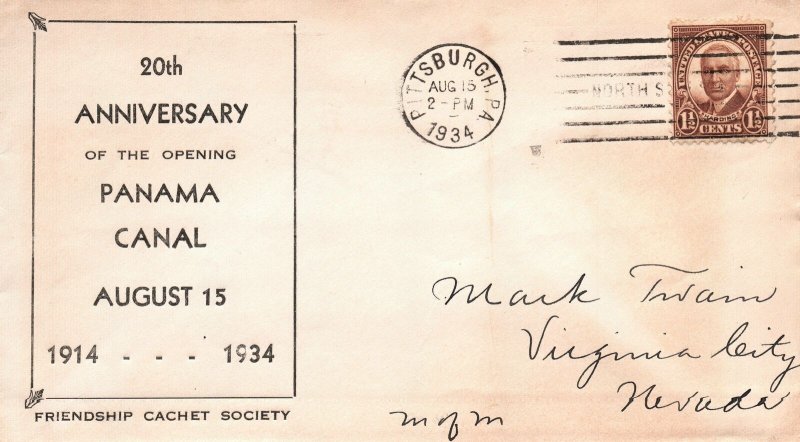 20th
ANNIVERSARY
OF THE OPENING
PANAMA
CANAL
AUGUST 15
1914 - - - 1934
FRIENDSHIP CACHET SOCIETY
PITTSBURGH, PA.
AUG 15
2 - PM
1934
NORTH S
UNITED STATES POSTAGE
HARDING
1½ CENTS 1½
Mark Twain
Virginia City
Nevada
M of M